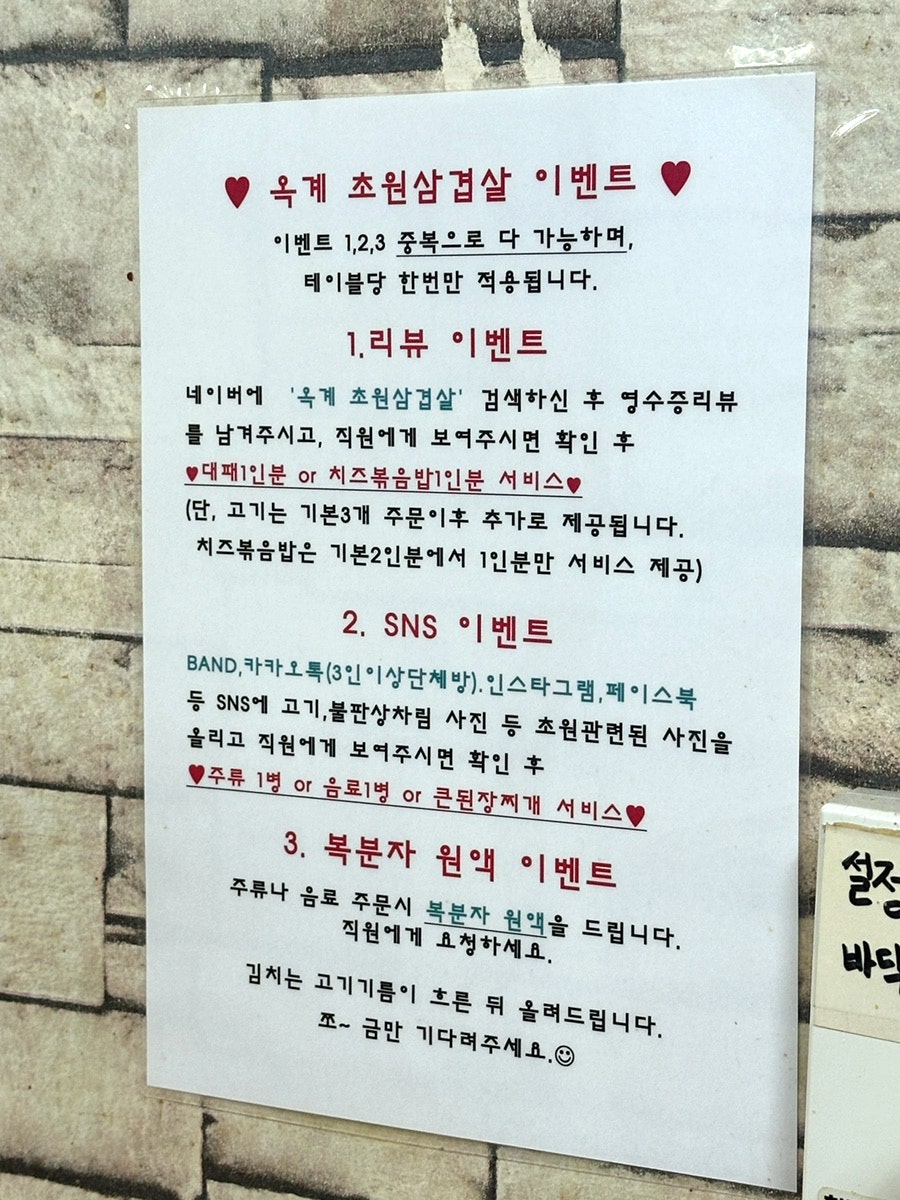 ♥ 옥계 초원삼겹살 이벤트 ♥
이벤트 1,2,3 중복으로 다 가능하며,
테이블당 한번만 적용됩니다.
1.리뷰 이벤트
네이버에 '옥계 초원삼겹살' 검색하신 후 영수증리뷰
를 남겨주시고, 직원에게 보여주시면 확인 후
♥대패1인분 or 치즈볶음밥1인분 서비스♥
(단, 고기는 기본3개 주문이후 추가로 제공됩니다.
치즈볶음밥은 기본2인분에서 1인분만 서비스 제공)
2. SNS 이벤트
BAND,카카오톡(3인이상단체방).인스타그램,페이스북
등 SNS에 고기,불판상차림 사진 등 초원관련된 사진을
올리고 직원에게 보여주시면 확인 후
♥주류 1병 or 음료1병 or 큰된장찌개 서비스♥
3. 복분자 원액 이벤트
주류나 음료 주문시 복분자 원액을 드립니다.
직원에게 요청하세요.
김치는 고기기름이 흐른 뒤 올려드립니다.
쪼~ 금만 기다려주세요.☺
설정
바닥